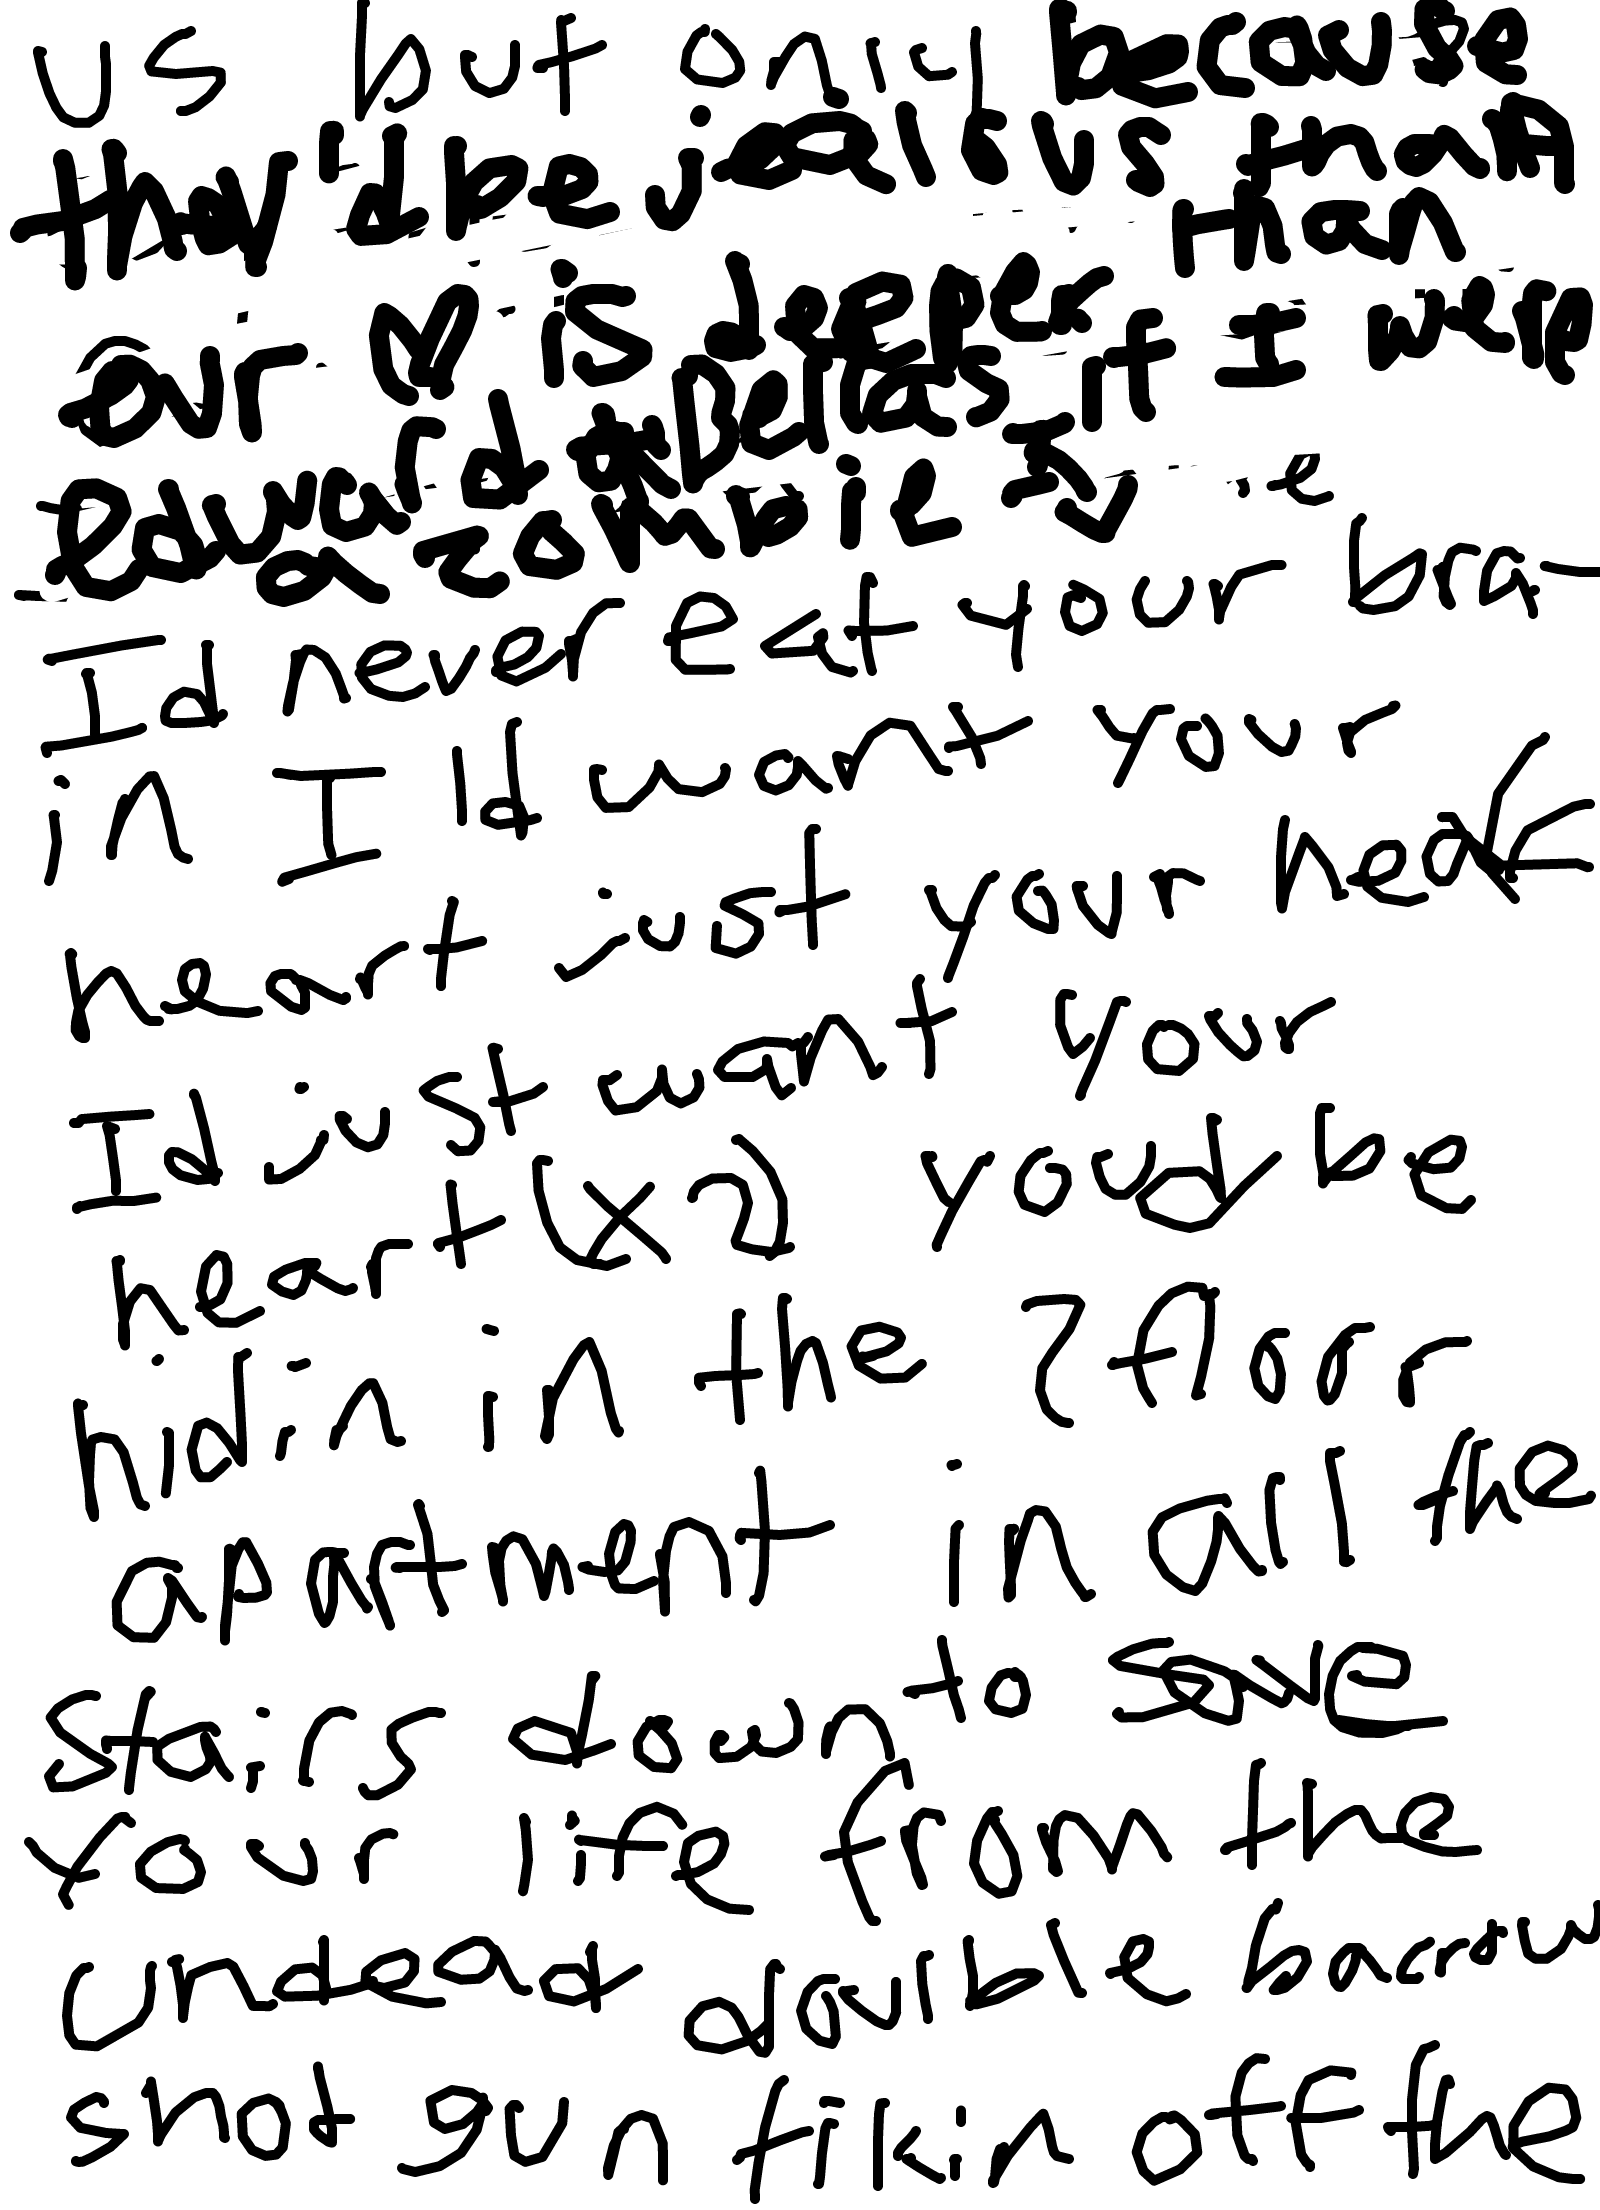 us but only because
they'd be jealous that
our ♡ is deeper than
edward & Bellas if I were
a zombie
I'd never eat your bra-
in I'd want your
heart just your
Id just want your
heart (x2) youd be
hidin in the 2 floor
apartment in all the
stairs down to save
your life from the
undead double barrow
shot gun tikin off the